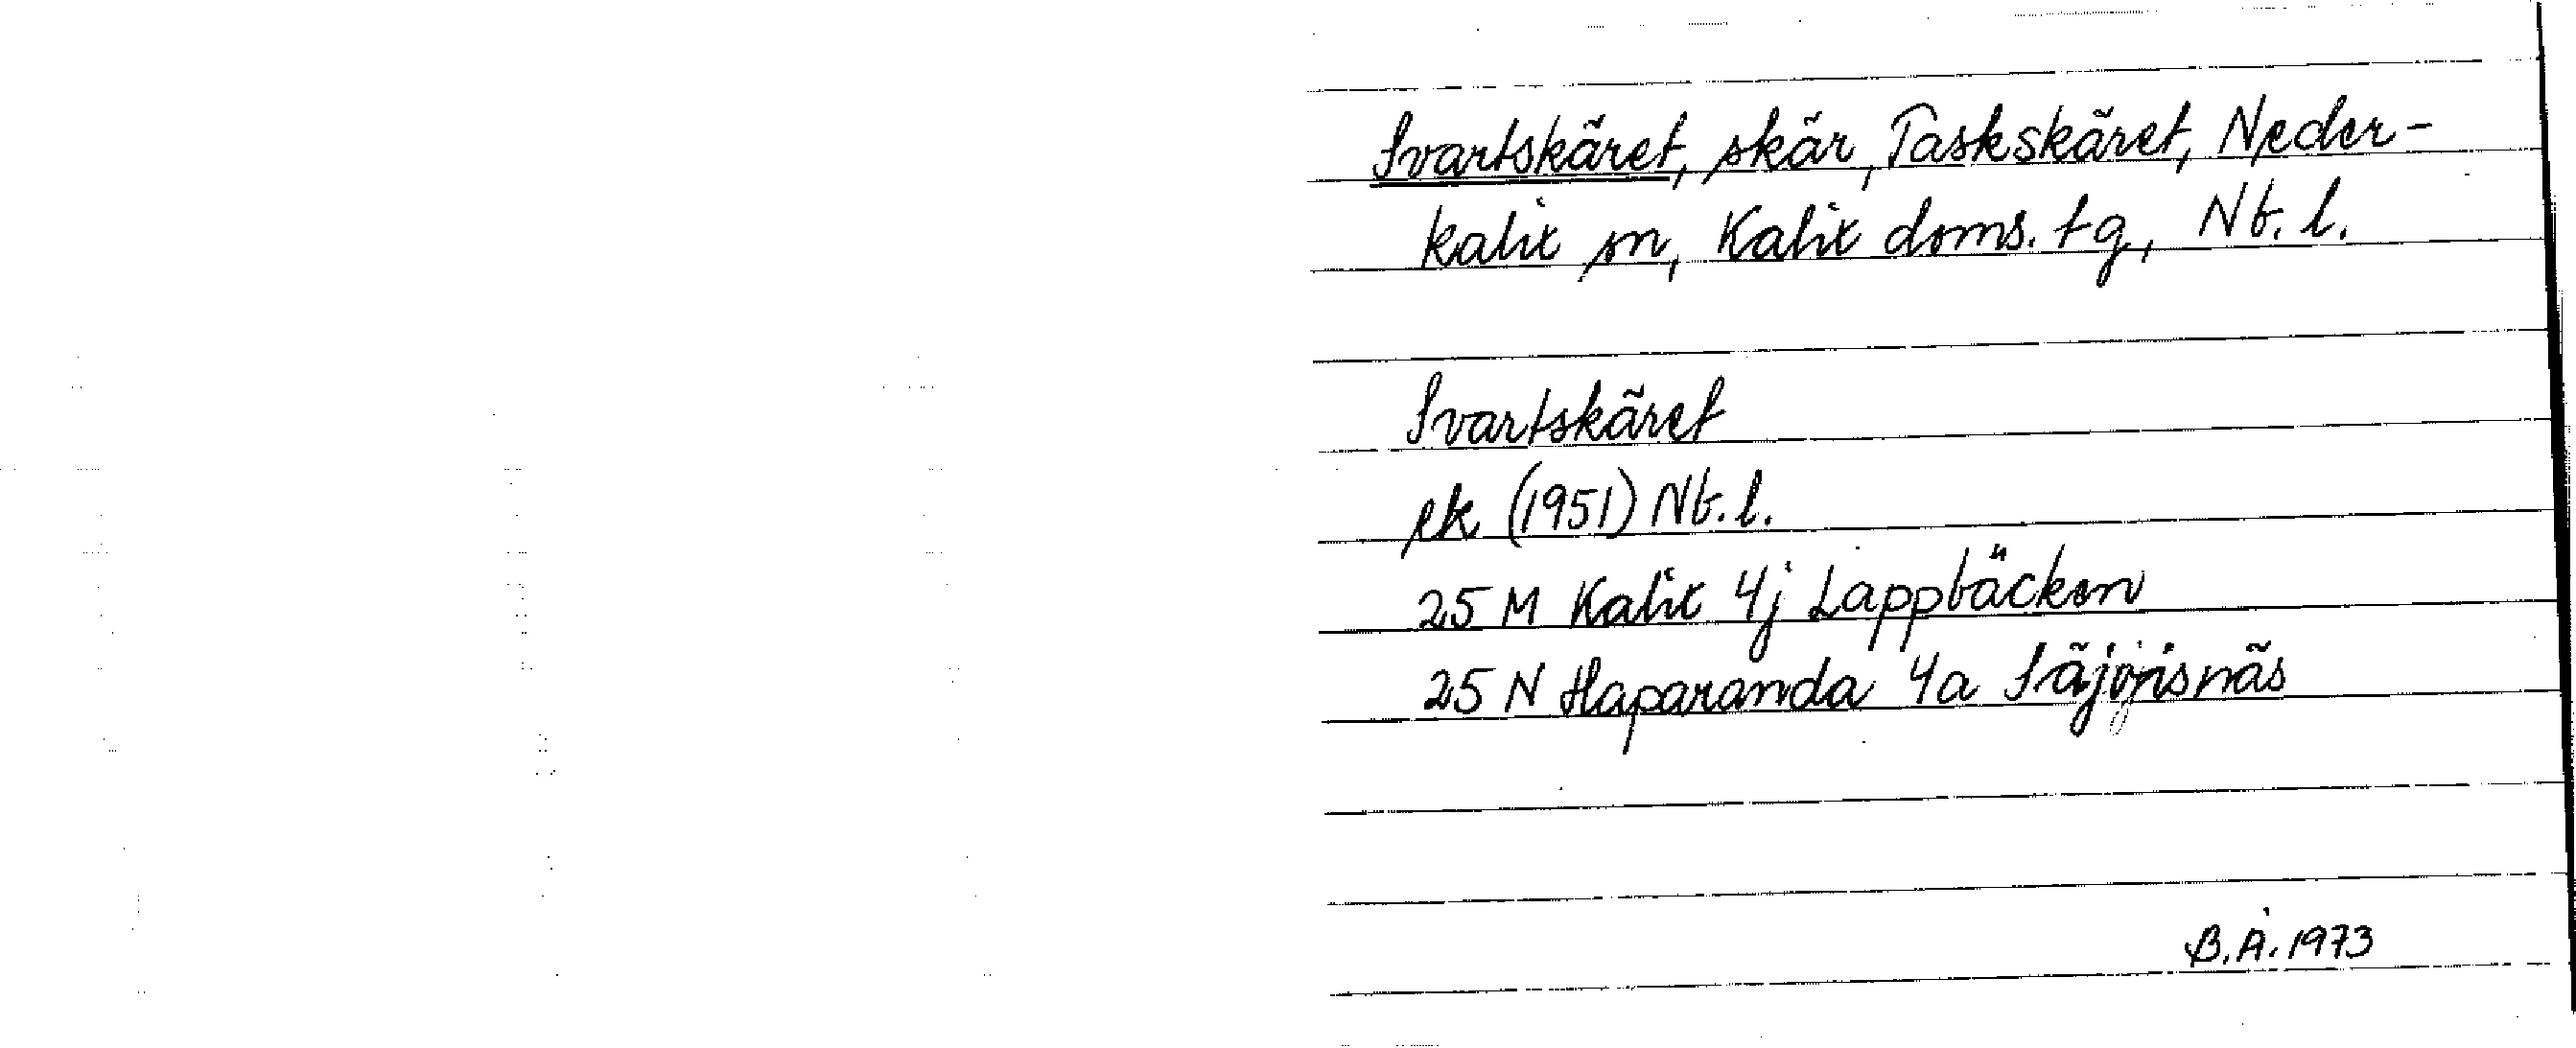 Svartskäret, skär, Taskskäret, Neder-
kalix sn, Kalix doms. tg, Nb. l.
Svartskäret
ek (1951) Nb. l.
25 M Kalix 4j Lappbäcken
25 N Haparanda 4a Säjvisnäs
B.Å. 1973